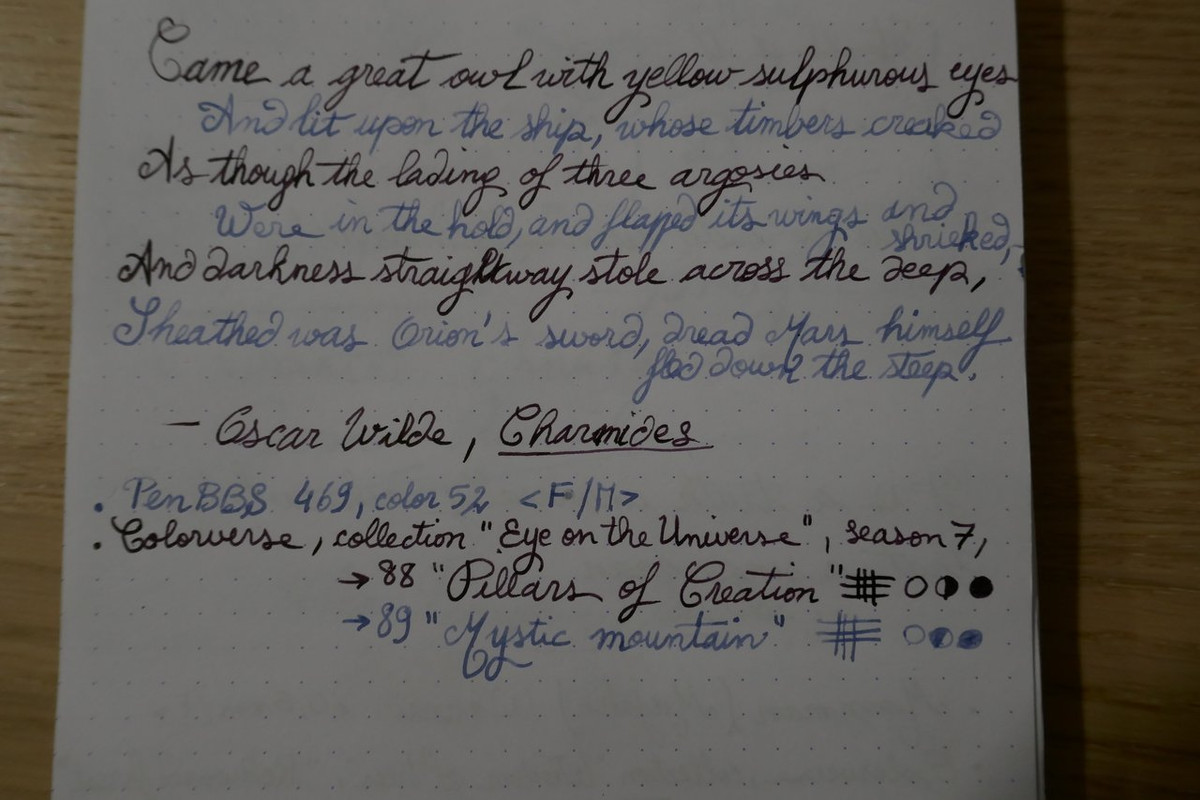 Came a great owl with yellow sulphurous eyes
And lit upon the ship, whose timbers creaked
As though the lading of three argosies
Were in the hold, and flapped its wings and
shrieked,
And darkness straightway stole across the deep,
Sheathed was Orion's sword, dread Mars himself
fled down the steep.
— Oscar Wilde, Charmides
• PenBBS 469, color 52 <F/M>
• Colorverse, collection "Eye on the Universe", season 7,
→ 88 "Pillars of Creation"
→ 89 "Mystic mountain"